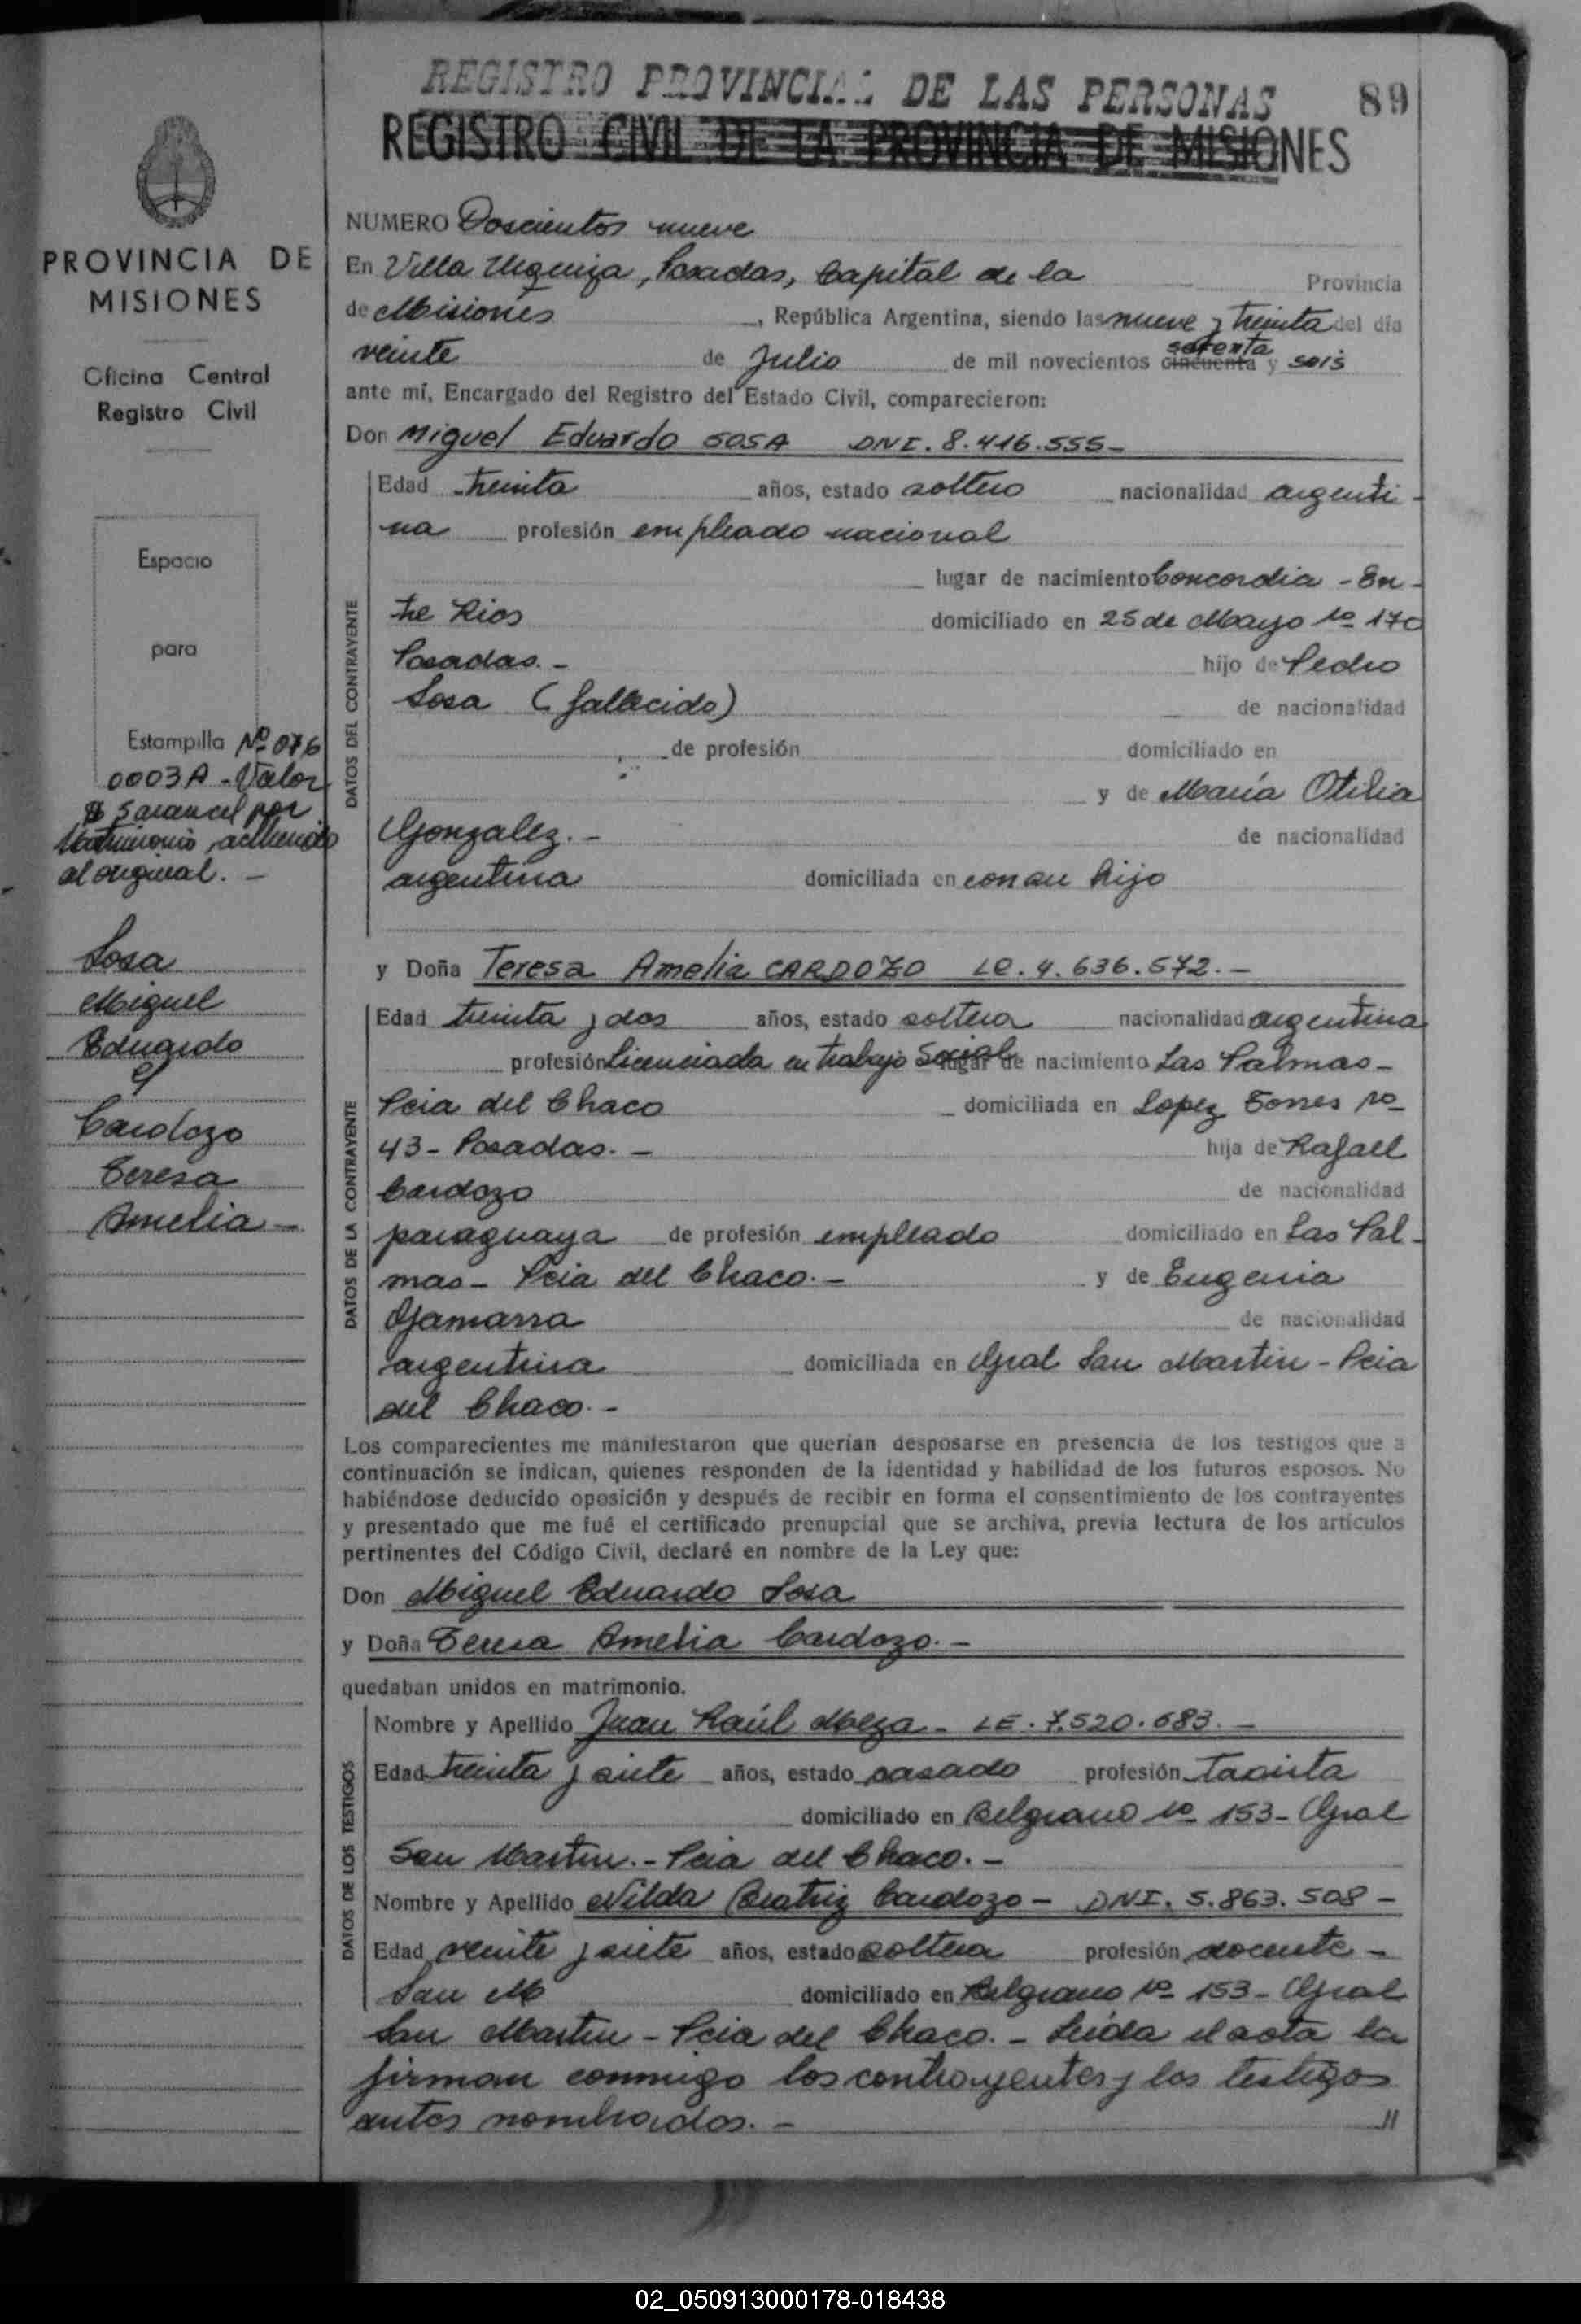 REGISTRO PROVINCIAL DE LAS PERSONAS 89
REGISTRO CIVIL DE LA PROVINCIA DE MISIONES
PROVINCIA DE
MISIONES
Oficina Central
Registro Civil
Espacio
para
Estampilla Nº 076
0003A - Valor
$ 5 arancel por
Matrimonio, adherido
al original. -
Sosa
Miguel
Eduardo
y
Cardozo
Teresa
Amelia -
NUMERO Doscientos nueve
En Villa Urquiza, Posadas, Capital de la Provincia
de Misiones, República Argentina, siendo las nueve y treinta del día
setenta
veinte de Julio de mil novecientos cincuenta y seis
ante mí, Encargado del Registro del Estado Civil, comparecieron:
Don Miguel Eduardo SOSA DNI. 8.416.555-
DATOS DEL CONTRAYENTE
Edad treinta años, estado soltero nacionalidad argenti-
na profesión empleado nacional
lugar de nacimiento Concordia - En-
tre Rios domiciliado en 25 de Mayo Nº 170
Posadas. - hijo de Pedro
Sosa (fallecido) de nacionalidad
de profesión domiciliado en
y de María Otilia
Gonzalez. - de nacionalidad
argentina domiciliada en con su hijo
y Doña Teresa Amelia CARDOZO LC. 4.636.572. -
DATOS DE LA CONTRAYENTE
Edad treinta y dos años, estado soltera nacionalidad argentina
profesión Licenciada en trabajo Social lugar de nacimiento Las Palmas -
Pcia del Chaco domiciliada en Lopez Torres Nº
43 - Posadas. - hija de Rafael
Cardozo de nacionalidad
paraguaya de profesión empleado domiciliado en Las Pal-
mas - Pcia del Chaco. - y de Eugenia
Gamarra de nacionalidad
argentina domiciliada en Gral San Martin - Pcia
del Chaco. -
Los comparecientes me manifestaron que querían desposarse en presencia de los testigos que a
continuación se indican, quienes responden de la identidad y habilidad de los futuros esposos. No
habiéndose deducido oposición y después de recibir en forma el consentimiento de los contrayentes
y presentado que me fué el certificado prenupcial que se archiva, previa lectura de los artículos
pertinentes del Código Civil, declaré en nombre de la Ley que:
Don Miguel Eduardo Sosa
y Doña Teresa Amelia Cardozo. -
quedaban unidos en matrimonio.
DATOS DE LOS TESTIGOS
Nombre y Apellido Juan Raúl Meza - LE. 7.520.683. -
Edad treinta y siete años, estado casado profesión Taxista
domiciliado en Belgrano Nº 153 - Gral
San Martin. - Pcia del Chaco. -
Nombre y Apellido Nilda Beatriz Cardozo - DNI. 5.863.508 -
Edad veinte y siete años, estado soltera profesión docente -
San M domiciliado en Belgrano Nº 153 - Gral
San Martin - Pcia del Chaco. - Leída el acta la
firman conmigo los contrayentes y los testigos
antes nombrados. - //
02_050913000178-018438